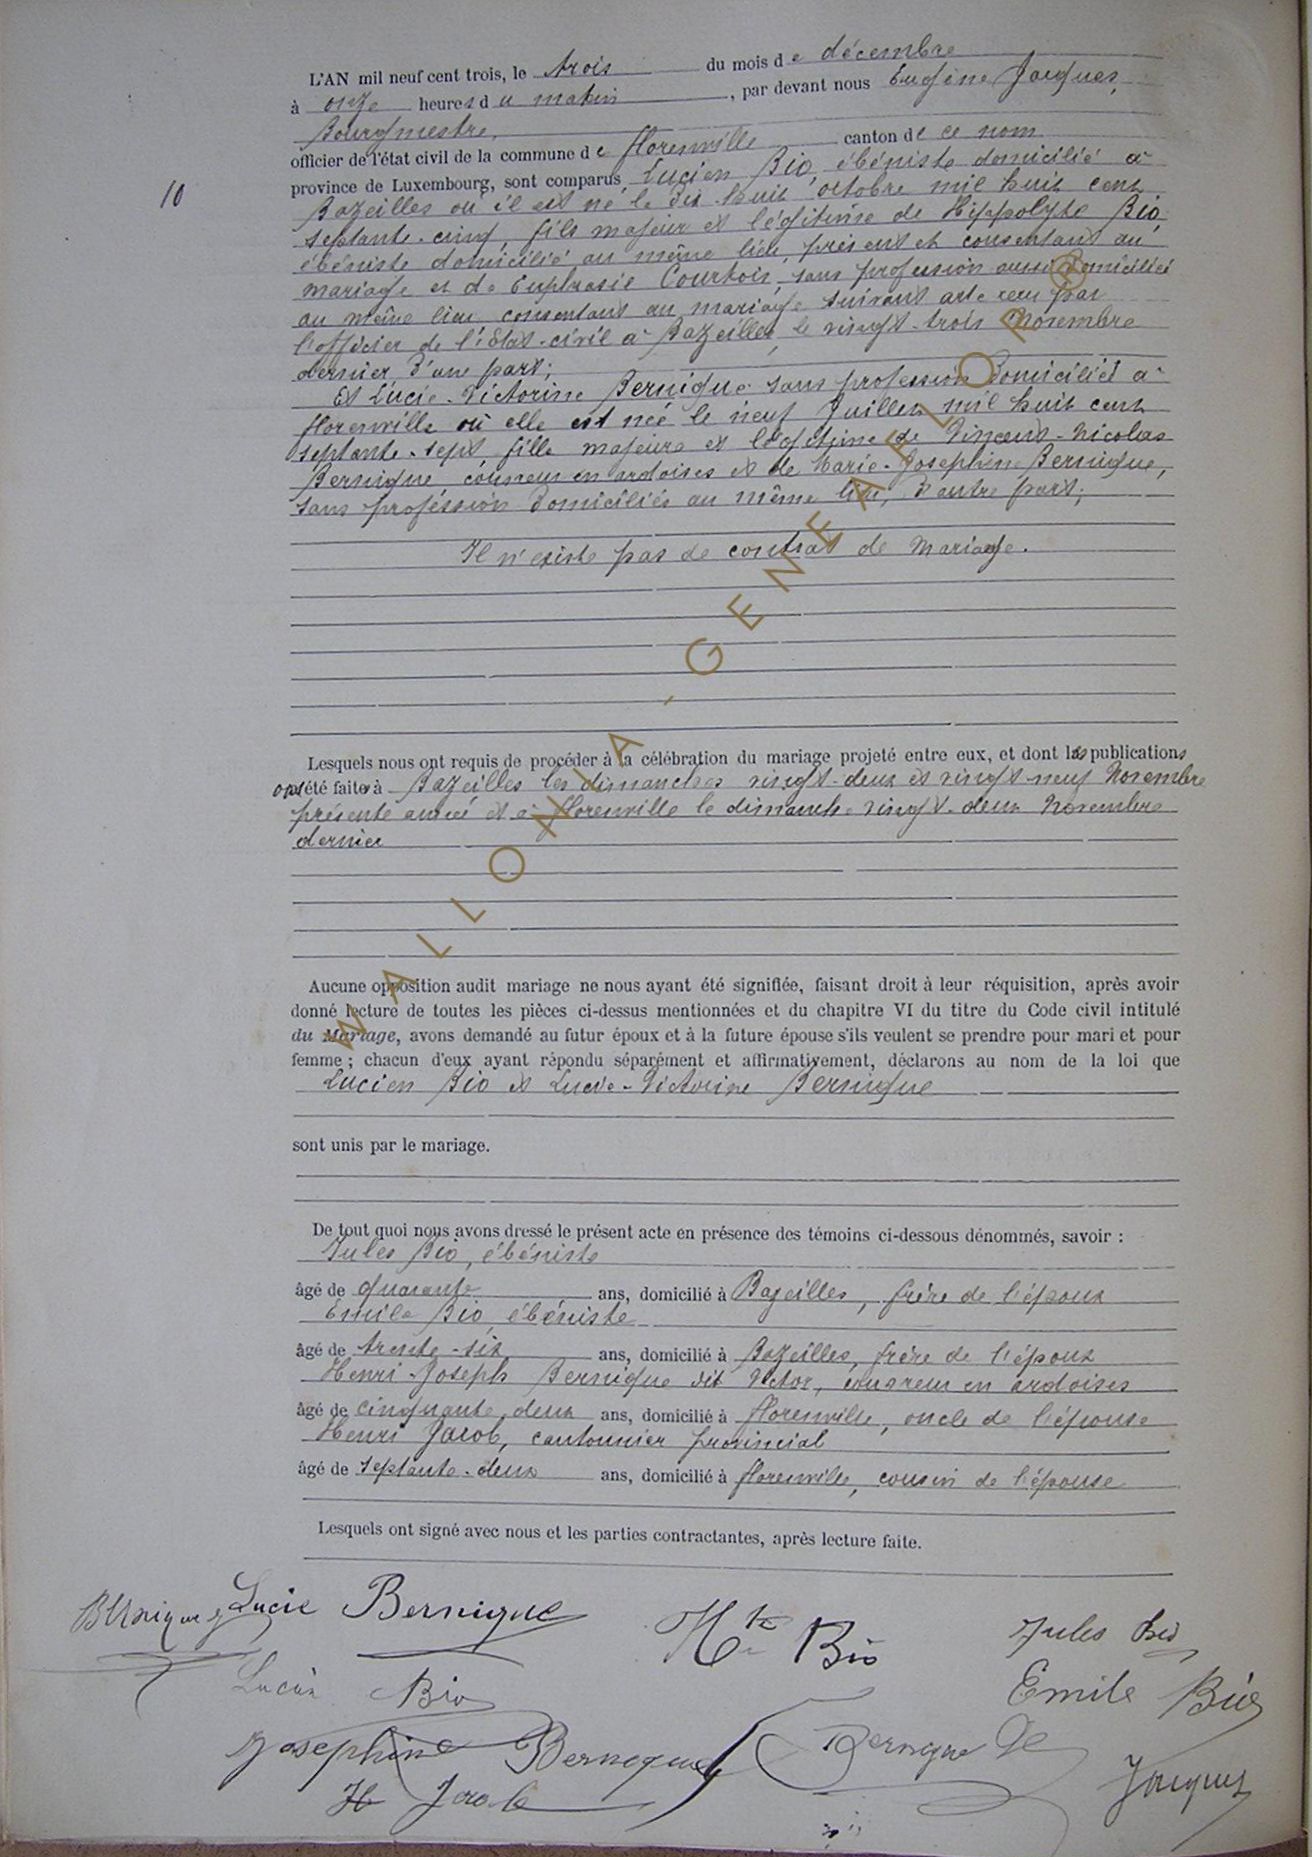 L'AN mil neuf cent trois, le trois du mois de décembre
à onze heures du matin, par devant nous Eugène Jacques,
Bourgmestre,
officier de l'état civil de la commune de Florenville canton de ce nom
10
province de Luxembourg, sont comparus, Lucien Bio, ébéniste domicilié à
Bazeilles où il est né le dix-huit octobre mil huit cent
septante-cinq, fils majeur et légitime de Hippolyte Bio,
ébéniste domicilié au même lieu, présent et consentant au
mariage et de Euphrasie Courtois, sans profession aussi domiciliée
au même lieu consentant au mariage suivant acte reçu par
l'officier de l'état-civil à Bazeilles, le vingt-trois Novembre
dernier d'une part;
Et Lucie-Victorine Bernique sans profession domiciliée à
Florenville où elle est née le neuf Juillet mil huit cent
septante-sept, fille majeure et légitime de Vincent-Nicolas
Bernique couvreur en ardoises et de Marie-Joséphine Bernique,
sans profession domiciliés au même lieu, d'autre part;
Il n'existe pas de contrat de mariage.
Lesquels nous ont requis de procéder à la célébration du mariage projeté entre eux, et dont les publications
ont été faites à Bazeilles les dimanches vingt-deux et vingt-neuf Novembre
présente année et à Florenville le dimanche vingt-deux Novembre
dernier
Aucune opposition audit mariage ne nous ayant été signifiée, faisant droit à leur réquisition, après avoir
donné lecture de toutes les pièces ci-dessus mentionnées et du chapitre VI du titre du Code civil intitulé
du Mariage, avons demandé au futur époux et à la future épouse s'ils veulent se prendre pour mari et pour
femme ; chacun d'eux ayant répondu séparément et affirmativement, déclarons au nom de la loi que
Lucien Bio et Lucie-Victorine Bernique
sont unis par le mariage.
De tout quoi nous avons dressé le présent acte en présence des témoins ci-dessous dénommés, savoir :
Jules Bio, ébéniste
âgé de quarante ans, domicilié à Bazeilles, frère de l'époux
Emile Bio, ébéniste
âgé de trente-six ans, domicilié à Bazeilles, frère de l'époux
Henri-Joseph Bernique dit Victor, couvreur en ardoises
âgé de cinquante deux ans, domicilié à Florenville, oncle de l'épouse
Henri Jacob, cantonnier provincial
âgé de septante-deux ans, domicilié à Florenville, cousin de l'épouse
Lesquels ont signé avec nous et les parties contractantes, après lecture faite.
Bernique Lucie Bernique Hte Bio Jules Bio
Lucien Bio Emile Bio
Joséphine Bernique Bernique
H Jacob Jacques
WALLONIA-GENEAFLOR ®